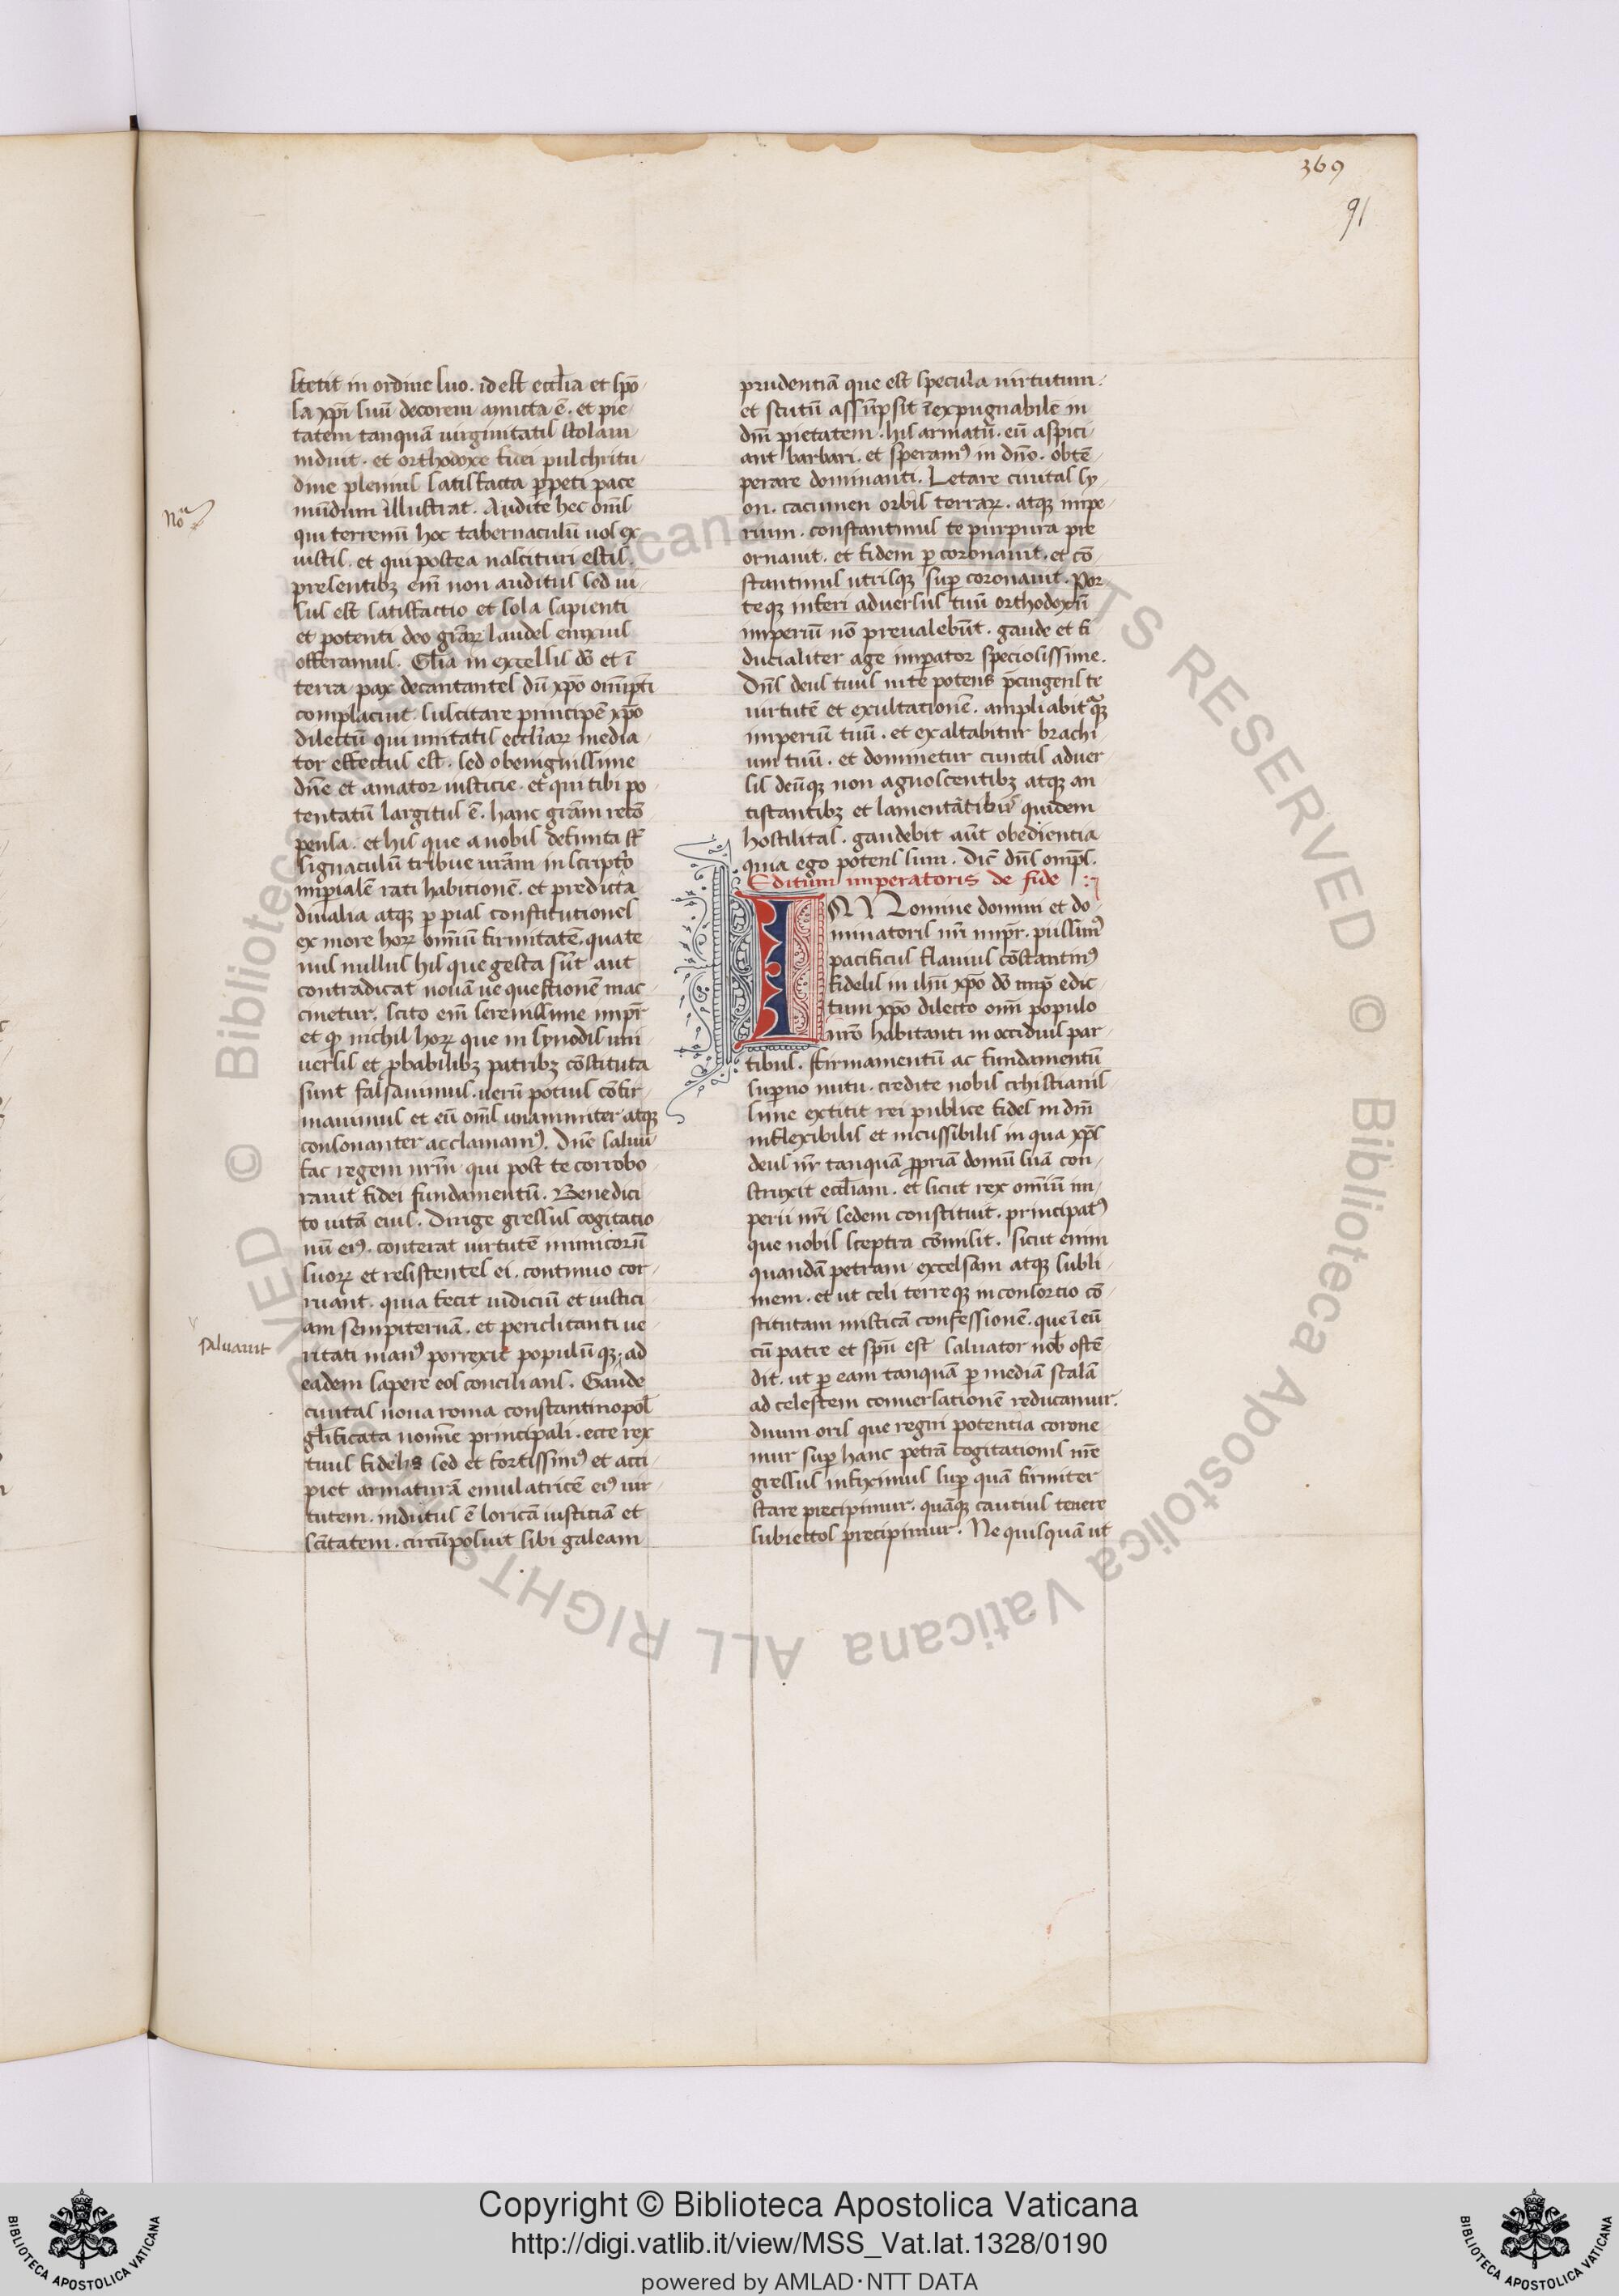 369
91
stetit in ordine suo. id est eccl̄ia et spō-
sa xp̄i suū decorem amicta ē. et pie-
tatem tanquā uirginitatis stolam
induit. et orthodoxe fidei pulchritu-
dine plenius satisfacta ꝑpeti pace
mūdum illustrat. Audite hec om̄s
qui terrenū hoc tabernaculū uol ex
uistis. et qui postea nascituri estis.
presentibꝫ em̄ non auditus sed ui-
sus est satisfactio et sola sapienti
et potenti deo gr̄aꝝ laudes enixius
offeramus. Gl̄ia in excelsis dō et ī
terra pax decantantes dū xp̄o om̄ipti
complacuit suscitare principē xp̄o
dilectū qui unitatis eccl̄iaꝝ media-
tor effectus est. sed o benignissime
dn̄e et amator iusticie. et qui tibi po-
tentatū largitus ē. hanc gr̄am recō-
pensa. et his que a nobis definita st̄
signaculū tribue ur̄am in scriptꝰ
imperialē rati habitionē. et predicta
diualia atqꝫ ꝑ pias constitutiones
ex more hoꝝ om̄iū firmitatē. quate-
nus nullus his que gesta sūt aut
contradicat nouā ue questionē mac-
cinetur. scito em̄ serenissime impr̄
et qͦ nichil hoꝝ que in synodis uni-
uersis et ꝓbabilibꝫ patribꝫ cōstituta
sunt falsauimus. uerū potius cōfir-
mauimus et eū om̄s unanimiter atqꝫ
consonanter acclamamꝰ. Dn̄e saluū
fac regem nr̄m qui post te corrobo-
rauit fidei fundamentū. Benedici-
to uitā eius. Dirige gressus cogitatio-
nū eiꝰ. conterat uirtutē inimicorū
suoꝝ et resistentes ei. continuo cor-
ruant. quia fecit iudiciū et iustici-
am sempiternā. et periclitanti ue-
ritati manꝰ porrexit populū qꝫ ad
eadem sapere eos concilians. Gaude
ciuitas noua roma constantinopol̄
gl̄ificata nomīe principali. ecce rex
tuus fidelis sed et fortissimꝰ et acci-
piet armaturā emulatricē eiꝰ uir-
tutem. indutus ē loricā iusticiā et
sc̄itatem. circūposuit sibi galeam
Noᵃ
saluauit
prudentiā que est specula uirtutum.
et scutū assūpsit īexpugnabile in
dm̄ pietatem. his armatū. eū aspici-
ant barbari. et speramꝰ in dn̄o. obtē-
perare dominanti. Letare ciuitas sy-
on. cacumen orbis terraꝝ. atqꝫ impe-
rium. constantinus te purpura pre
ornauit. et fidem ꝑ coronauit. et cō-
stantinus utrisqꝫ suꝑ coronauit. Por-
te qꝫ inferi aduersus tuū orthodoxū
imperiū nō preualebūt. gaude et fi-
ducialiter age imꝑator speciosissime.
Dn̄s deus tuus in te potens p̄cingens te
uirtutē et exultationē. ampliabitqꝫ
imperiū tuū. et exaltabitur brachi-
um tuū. et dominetur cunctis aduer-
sis deūqꝫ non agnoscentibꝫ atqꝫ an-
tistantibꝫ et lamentātibus quidem
hostilitas. gaudebit aūt obedientia
quia ego potens sum. dic̄ dn̄s omps̄.
Editum imperatoris de fide
IN Nomine domini et do-
minatoris nr̄i impr̄. piissimꝰ
pacificus flauius cōstantinꝰ
fidelis in ih̄u xp̄o dō imp̄r edic-
tum xp̄o dilecto om̄i populo
nr̄o habitanti in occiduis par-
tibus. Firmamentū ac fundamentū
suꝑno nutu. credite nobis crhistianis-
sime extitit rei publice fides in dm̄
inflexibilis et incussibilis in qua xp̄s
deus nr̄ tanquā ꝓpriā domū suā con-
struxit eccl̄iam. et sicut rex om̄iū im-
perii nr̄i sedem constituit. principatꝰ
que nobis sceptra cōmisit. sicut enim
quandā petram excelsam atqꝫ subli-
mem. et ut celi terre qꝫ in consortio cō-
stitutam misticā confessionē. que ī eū
cū patre et spū est saluator nob̄ ostē-
dit. ut ꝑ eam tanquā ꝑ mediā scalā
ad celestem conuersationē reducamur.
diuinoris que regni potentia corone-
mur suꝑ hanc petrā cogitationis nr̄e
gressus infiximus suꝑ quā firmiter
stare precipimur. quāqꝫ cautius tenere
subiectos precipimur. Ne quisquā ut
Copyright © Biblioteca Apostolica Vaticana
http://digi.vatlib.it/view/MSS_Vat.lat.1328/0190
powered by AMLAD·NTT DATA
BIBLIOTECA APOSTOLICA VATICANA
BIBLIOTECA APOSTOLICA VATICANA
© Biblioteca Apostolica Vaticana ALL RIGHTS RESERVED © Biblioteca Apostolica Vaticana ALL RIGHTS RESERVED